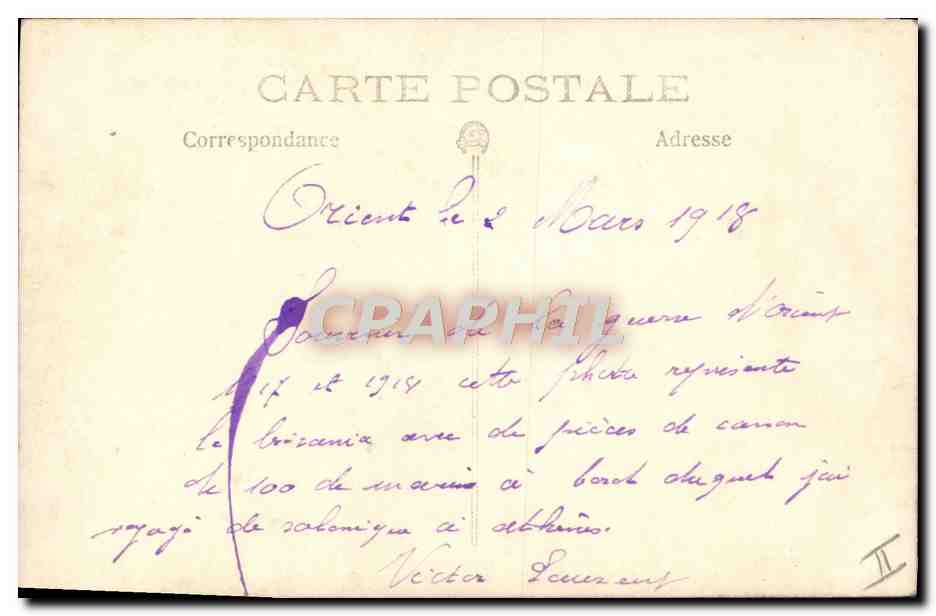 CARTE POSTALE
Correspondance
Adresse
Orient le 2 Mars 1918
CPAPHIL
Souvenir de la guerre d'Orient
17 et 1918 cette photo représente
le avec de pièces de canon
de 100 de marine à bord duquel j'ai
voyagé de salonique à athènes.
Victor Laurent
II